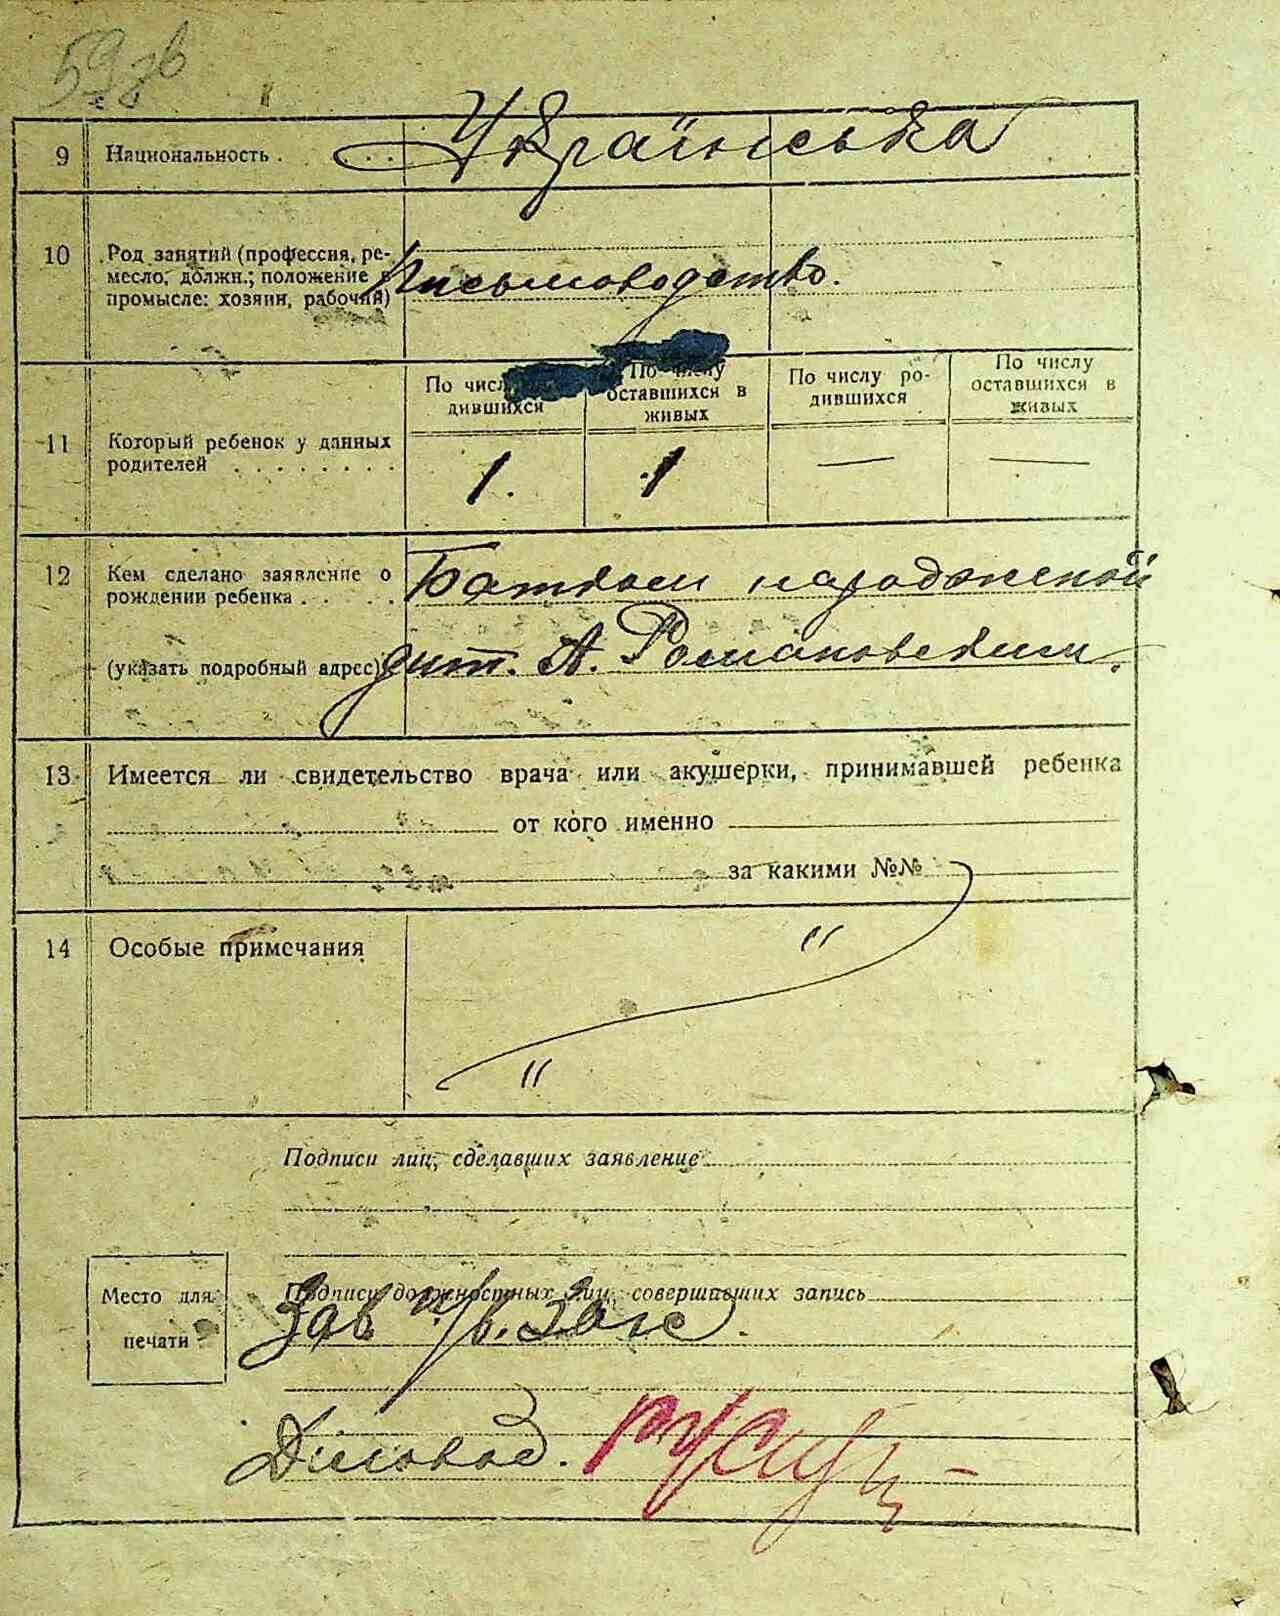 59 зв
9 Национальность . . . Українська
10 Род занятий (профессия, ре-
месло, должн.; положение в
промысле: хозяин, рабочий) Письмоводство.
По числу ро-
дившихся
По числу
оставшихся в
живых
По числу ро-
дившихся
По числу
оставшихся в
живых
11 Который ребенок у данных
родителей . . . . . . . .
1. 1 — —
12 Кем сделано заявление о
рождении ребенка . . . . Батьком народженной
(указать подробный адрес) дит. А. Романовским.
13 Имеется ли свидетельство врача или акушерки, принимавшей ребенка
от кого именно
за какими №№
14 Особые примечания
"
"
Подписи лиц, сделавших заявление
Место для
печати
Подписи должностных лиц, совершавших запись
Зав. п/в. Загс.
Діловод.